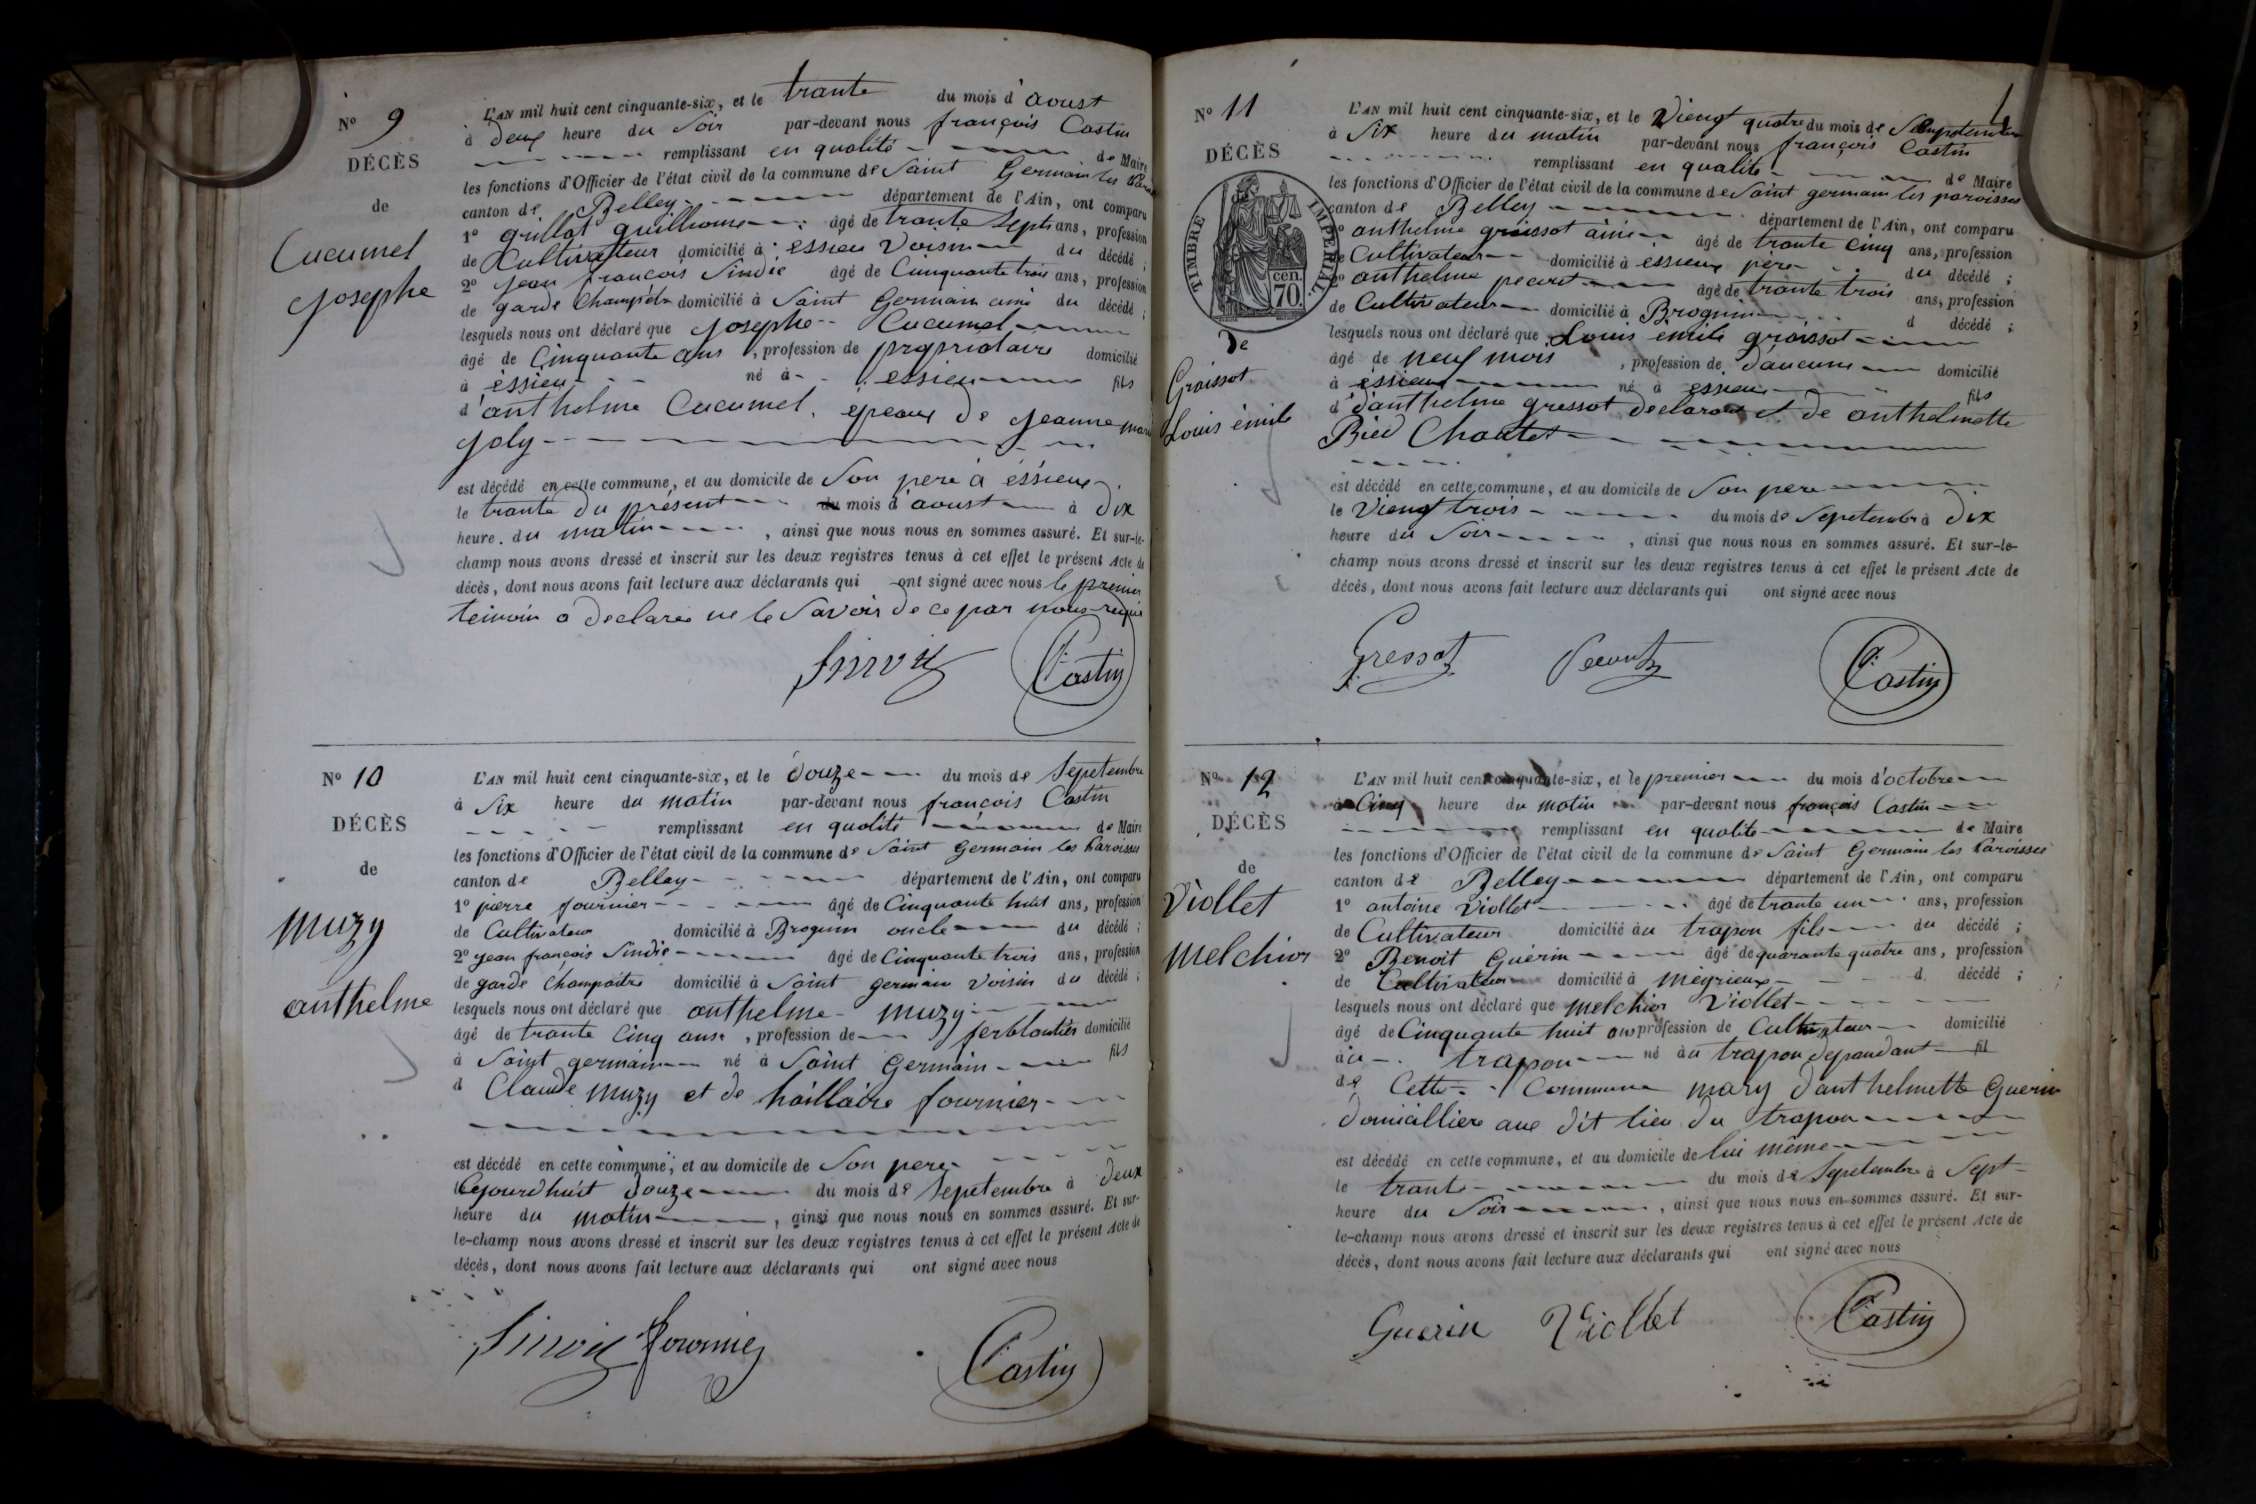 Nº 9
DÉCÈS
de
Cucumel
Josephe
L'AN mil huit cent cinquante-six, et le trante du mois d'aoust
à deux heure du soir par-devant nous françois Castin
remplissant en qualité de Maire
les fonctions d'Officier de l'état civil de la commune de Saint Germain les
canton de Belley département de l'Ain, ont comparu
1º grillot guilliaume âgé de trante Sept ans, profession
de Cultivateur domicilié à essieu voisin du décédé ;
2º jean françois Sindic âgé de Cinquante trois ans, profession
de garde Champêtre domicilié à Saint Germain ami du décédé ;
lesquels nous ont déclaré que Josephe Cucumel
âgé de Cinquante ans, profession de propriotaire domicilié
à éssieu né à essieu fils
d'anthelme Cucumel, épeoux de Jeanne
Joly
est décédé en cette commune, et au domicile de Son pere à éssieux
le trante du présent du mois d'aoust à dix
heure du matin, ainsi que nous nous en sommes assuré. Et sur-le-
champ nous avons dressé et inscrit sur les deux registres tenus à cet effet le présent Acte de
décès, dont nous avons fait lecture aux déclarants qui ont signé avec nous le premier
témoin a declaré ne le Savoir de ce par nous requi
Castin
Nº 10
DÉCÈS
de
Muzy
anthelme
L'AN mil huit cent cinquante-six, et le douze du mois de Sepetembre
à Six heure du matin par-devant nous françois Castin
remplissant en qualité de Maire
les fonctions d'Officier de l'état civil de la commune de Saint Germain les Paroisses
canton de Belley département de l'Ain, ont comparu
1º pierre fournier âgé de Cinquante huit ans, profession
de Cultivateur domicilié à Brognin oncle du décédé ;
2º jean françois Sindic âgé de Cinquante trois ans, profession
de garde Champaitre domicilié à Saint germain Voisin du décédé ;
lesquels nous ont déclaré que anthelme Muzy
âgé de trante Cinq ans, profession de ferblontier domicilié
à Saint germain né à Saint Germain fils
d Claude Muzy et de haillaire fournier
est décédé en cette commune, et au domicile de Son pere
le Cejourd'huit douze du mois de Sepetembre à deux
heure du matin, ainsi que nous nous en sommes assuré. Et sur-
le-champ nous avons dressé et inscrit sur les deux registres tenus à cet effet le présent Acte de
décès, dont nous avons fait lecture aux déclarants qui ont signé avec nous
fournier
Castin
Nº 11
DÉCÈS
TIMBRE IMPERIAL
70 cen.
de
Groissot
Louis émile
L'AN mil huit cent cinquante-six, et le Viengt quatre du mois de
à Six heure du matin par-devant nous françois Castin
remplissant en qualité de Maire
les fonctions d'Officier de l'état civil de la commune de Saint germain les paroisses
canton de Belley département de l'Ain, ont comparu
1º anthelme groissot ainé âgé de trante cinq ans, profession
de Cultivateur domicilié à essieux père du décédé ;
2º anthelme âgé de trante trois ans, profession
de Cultivateur domicilié à Brognin d décédé ;
lesquels nous ont déclaré que Louis émile groissot
âgé de neuf mois, profession de d'aucune domicilié
à éssieux né à essieu fils
d d'anthelme gressot declarant et de anthelmette
Bied Chartet
est décédé en cette commune, et au domicile de Son pere
le Viengt trois du mois de Sepetembre à dix
heure du Soir, ainsi que nous nous en sommes assuré. Et sur-le-
champ nous avons dressé et inscrit sur les deux registres tenus à cet effet le présent Acte de
décès, dont nous avons fait lecture aux déclarants qui ont signé avec nous
Gressot
Castin
Nº 12
DÉCÈS
de
Viollet
Melchior
L'AN mil huit cent cinquante-six, et le premier du mois d'octobre
à Cinq heure du matin par-devant nous françois Castin
remplissant en qualité de Maire
les fonctions d'Officier de l'état civil de la commune de Saint Germain les Paroisses
canton de Belley département de l'Ain, ont comparu
1º antoine Viollet âgé de trante un ans, profession
de Cultivateur domicilié àu trapon fils du décédé ;
2º Benoit Guérin âgé de quarante quatre ans, profession
de Cultivateur domicilié à Meyrieux d décédé ;
lesquels nous ont déclaré que Melchior Viollet
âgé de Cinquante huit ans profession de Cultivateur domicilié
àu trapon né àu trapon dépandant fil
de Cette Commune mary d'anthelmette Guerin
domicilliere aux dit lieu du trapon
est décédé en cette commune, et au domicile de lui même
le trante du mois de Sepetembre à Sept
heure du Soir, ainsi que nous nous en sommes assuré. Et sur-
le-champ nous avons dressé et inscrit sur les deux registres tenus à cet effet le présent Acte de
décès, dont nous avons fait lecture aux déclarants qui ont signé avec nous
Guerin Viollet Castin